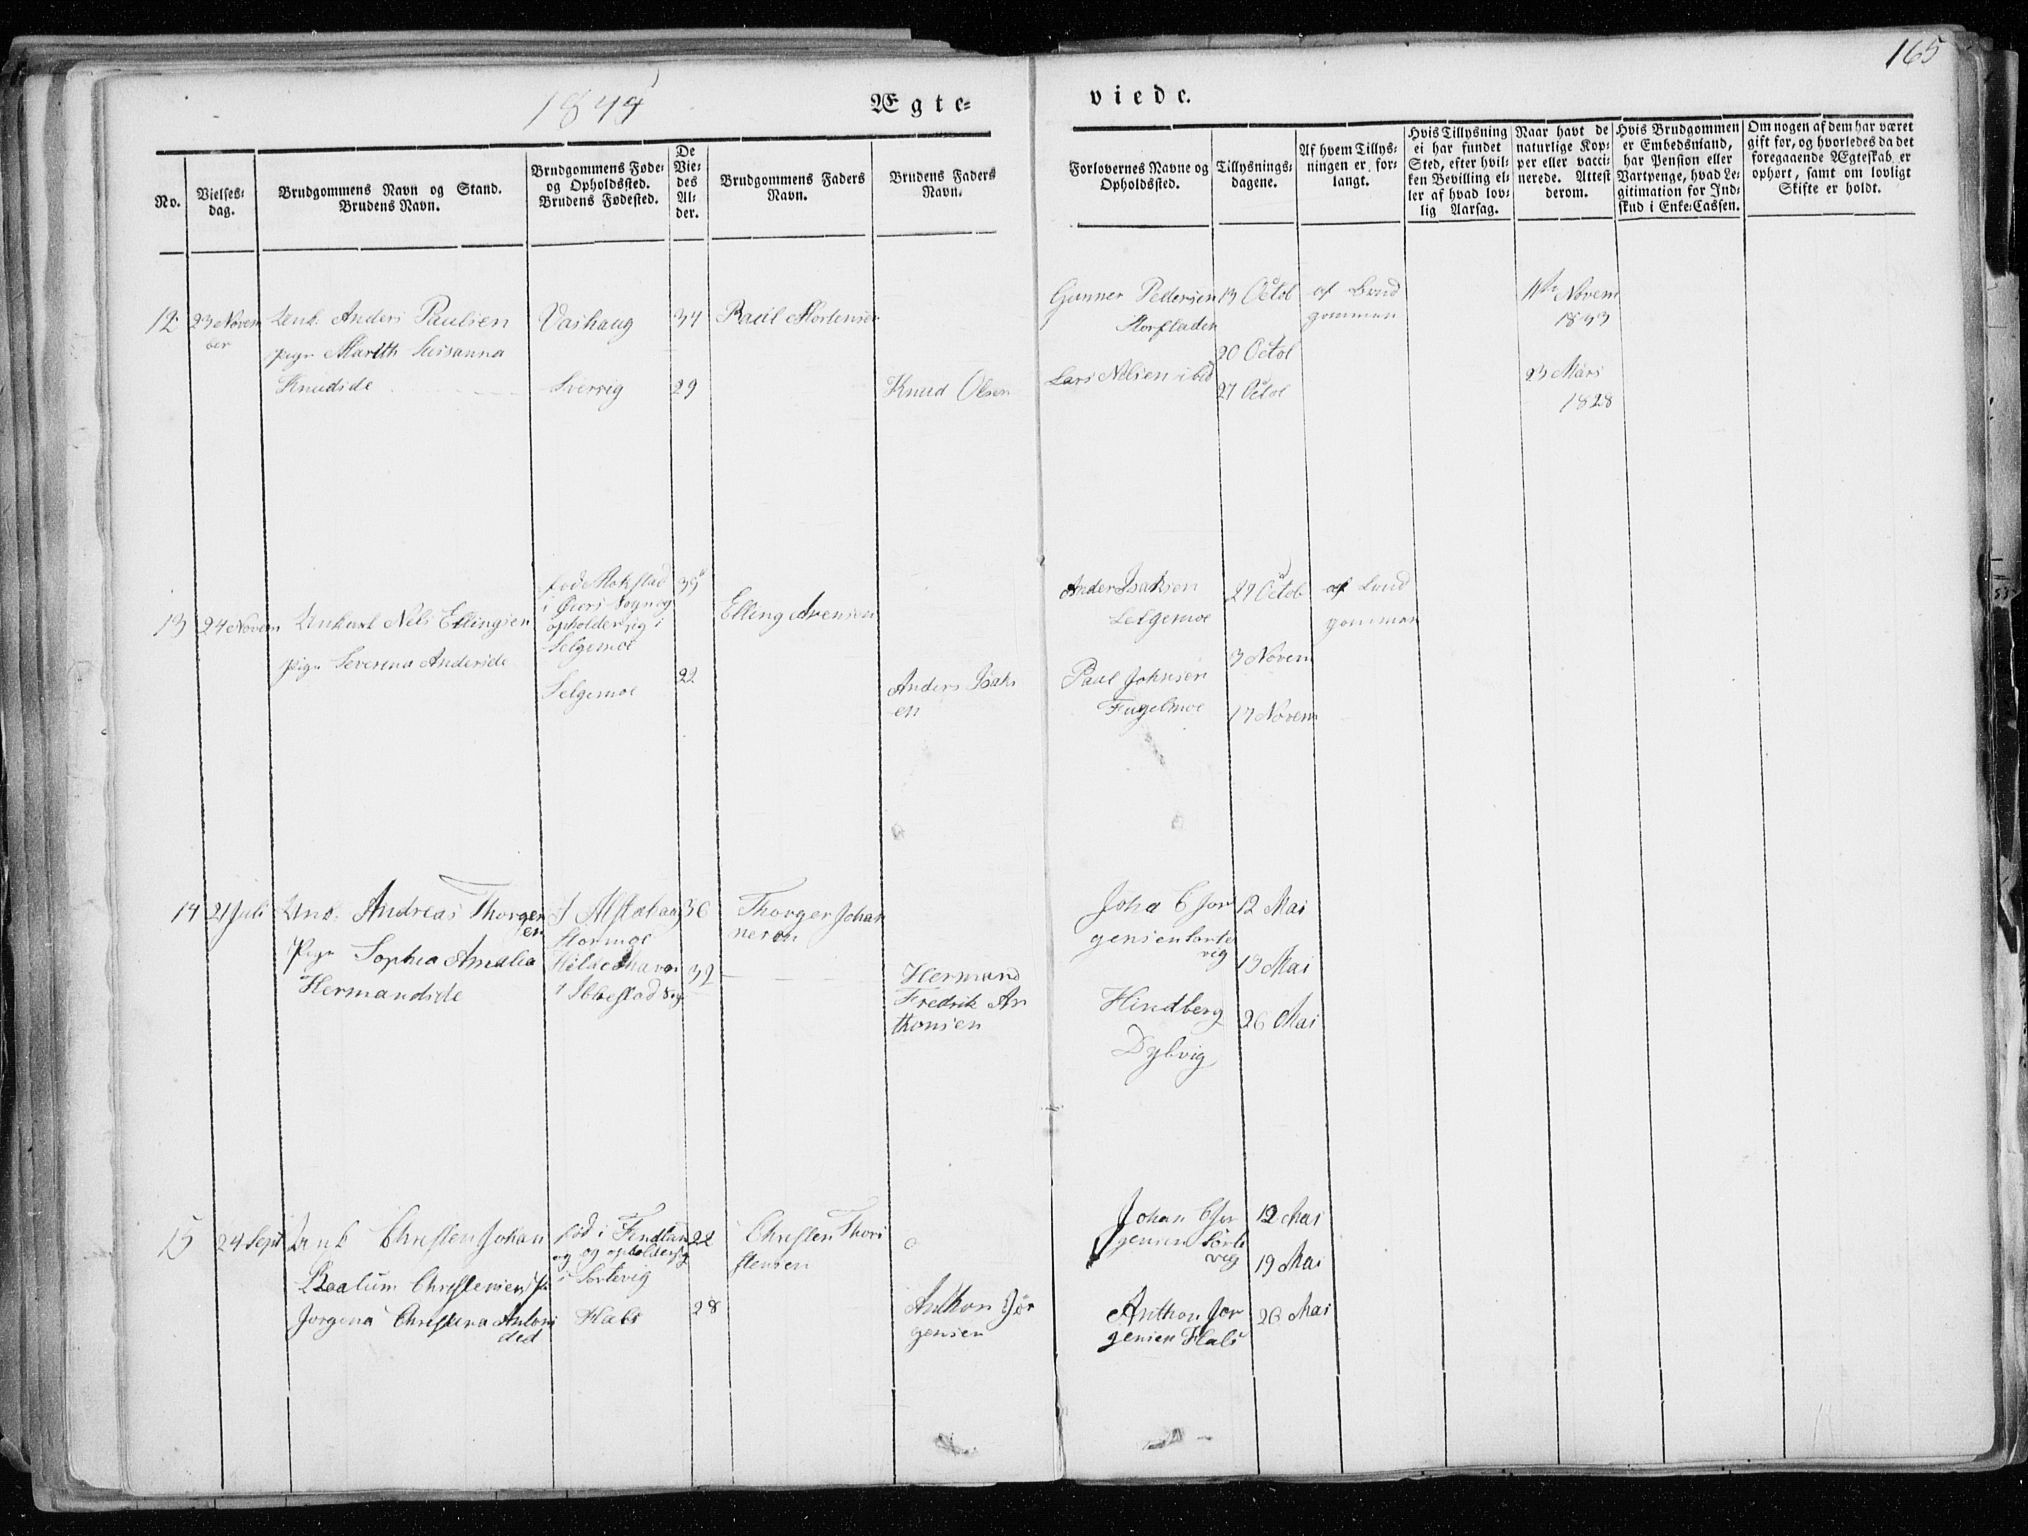 165
1844
Ægte= viede.
No.
Vielses-
dag.
Brudgommens Navn og Stand.
Brudens Navn.
Brudgommens Føde-
og Opholdssted.
Brudens Fødested.
De
Vie-
des
Al-
der.
Brudgommens Faders
Navn.
Brudens Faders
Navn.
Forlovernes Navne og
Opholdssted.
Tillysnings-
dagene.
Af hvem Tillys-
ningen er for-
langt.
Hvis Tillysning
ei har fundet
Sted, efter hvil-
ken Bevilling el-
ler af hvad lov-
lig Aarsag.
Naar havt de
naturlige Kop-
per eller vacci-
nerede. Attest
derom.
Hvis Brudgommen
er Embedsmand,
har Pension eller
Vartpenge, hvad Le-
gitimation for Ind-
skud i Enke-Cassen.
Om nogen af dem har været
gift før, og hvorledes da det
foregaaende Ægteskab er
ophørt, samt om lovligt
Skifte er holdt.
12
23 Novem
ber
Unk. Anders Paulsen
Pige Marith Susanna
Knudsde
Vashaug
34
Sverrig
29
Paul Mortensen
Knud Olsen
Gunner Pedersen
Lars Nilsen ibd
13 Octob
20 Octob
27 Octob
af Brud
gommen
11te Novem
1843
23 Mars
1828
13
24 Novem
Unkarl Nels Ellingsen
Pige Severina Andersde
opholder sig i
Selgemoe
39
Selgemoe
22
Elling
Anders Isaks
en
Anders Isaksen
Selgemoe
Paul Johnsen
Fugelmoe
27 Octob
3 Novem
17 Novem
af Brud
gommen
14
21 Juli
Unk. Andreas Thorger
en
Pige Sophia Amalia
Hermandsde
36
Stormoe
i Ibbestad Sog
32
Thorger Johan
nesen
Hermand
Fredrik An
thonsen
Joha C Jor
gensen Sorte
vig
Hindberg
Dybvig
12 Mai
19 Mai
26 Mai
15
24 Sept
Unk Christen Johan
Christensen
Jorgena Christina Antoni
ded
fød i
og og opholder sig
i Sortevig
22
Hals
28
Christen Thori
stensen
Anthon Jör
gensen
Johan C Jor
gensen Sorte
vig
Anthon Jor
gensen Hals
12 Mai
19 Mai
26 Mai